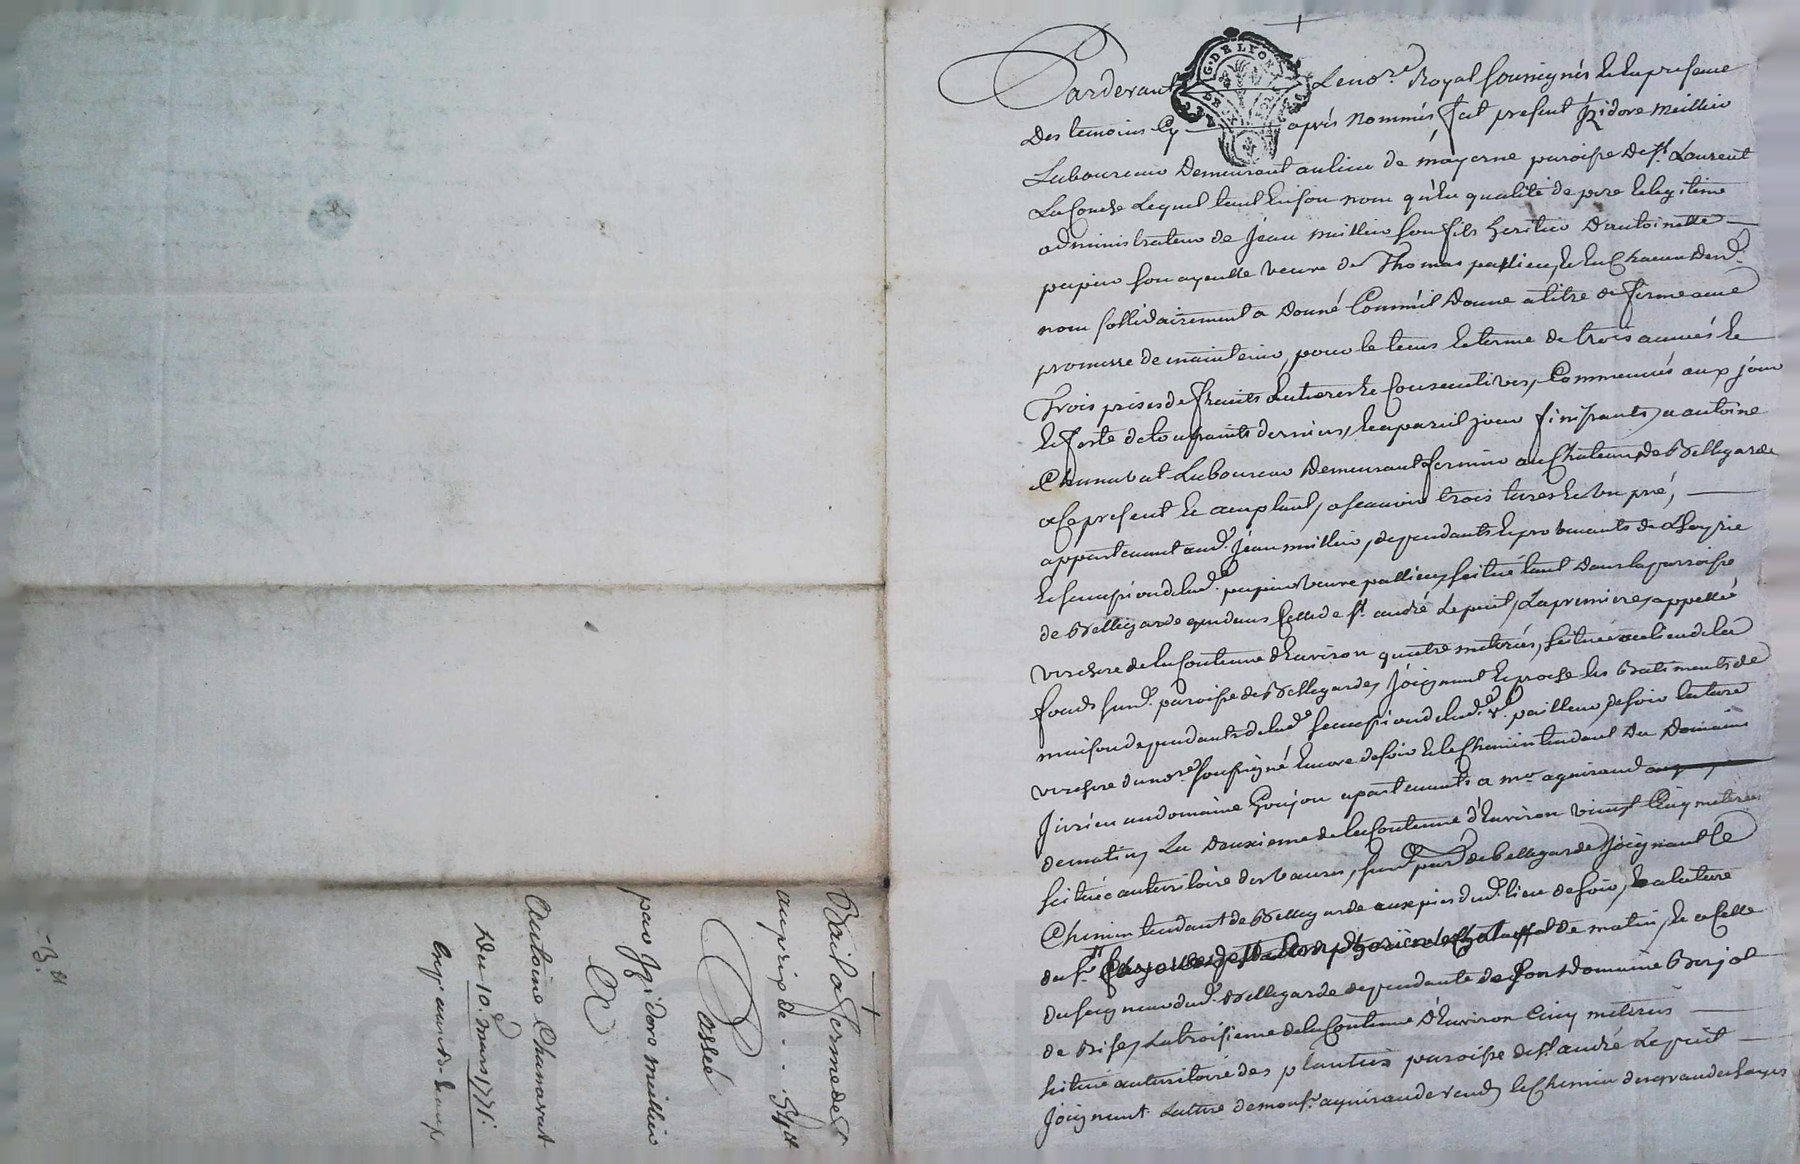 Pardevant Le no.re Royal soussignés et en presence
Des temoins Cy après Nommés, fut present Izidore meillier
Laboureur Demeurant au lieu de mayerne paroisse de st. Laurent
La Conche Lequel tant En son nom qu'En qualité de pere et legitime
administrateur de Jean meillier son fils heritier D'antoinette
papier son ayeulle veuve de Thomas pallieu, et En Chacun Desd.
nom sollidairement a Donné Comm'il Donne a titre de ferme avec
promesse de maintenir, pour le tems et terme de trois années et
Trois prises de fruits Entieres et Consecutives, Commencés aux jour
et feste de toussaints derniers, et a pareil jour finissants, a antoine
Chamarat Laboureur Demeurant fermier au Chateau de Bellegarde
a Ce present et acceptant, a scavoir trois terres et un pré,
appartenant aud. Jean meillier, dependants et provenants de L'hoyrie
et succession de lad.e papier veuve pallieu, scitué tant Dans la parroisse
de Bellegarde que dans Celle de st. andré Le puit, La premiere, appellée
verchere de la Contenue d'Environ quatre meterées, scituée au lieu de la
fond, sur d. paroisse de Bellegarde, Joignant et proche les Batiments de
maison dependants de lad.e succession de lad.e v.e pallieu, de soir la terre
verchere du no.re soussigné Encore de soir et le Chemin tendant Du Domaine
au domaine Goujon apartenants a mr. aguiraud
de matin, La Deuxieme de la Contenue d'Environ vingt Cinq meterées
scituée au territoire des vaures, sur d. par.se de bellegarde, Joignant le
Chemin tendant de Bellegarde aux pies du d. lieu de soir, la terre
du sr. de matin, et a Celle
du seigneur dud. Bellegarde dependante de son Domaine Berjot
de Bise, La troisieme de la Contenue D'Environ Cinq meterées
scituée au territoire des planties paroisse de st. andré Le puit
Joignant La terre de monsr. aguiraud et le Chemin
Bail a ferme de
au prix de - - 54 tt
Passé
par Izidore meillier
A
Antoine Chamarat
Du 10.e mars 1771.